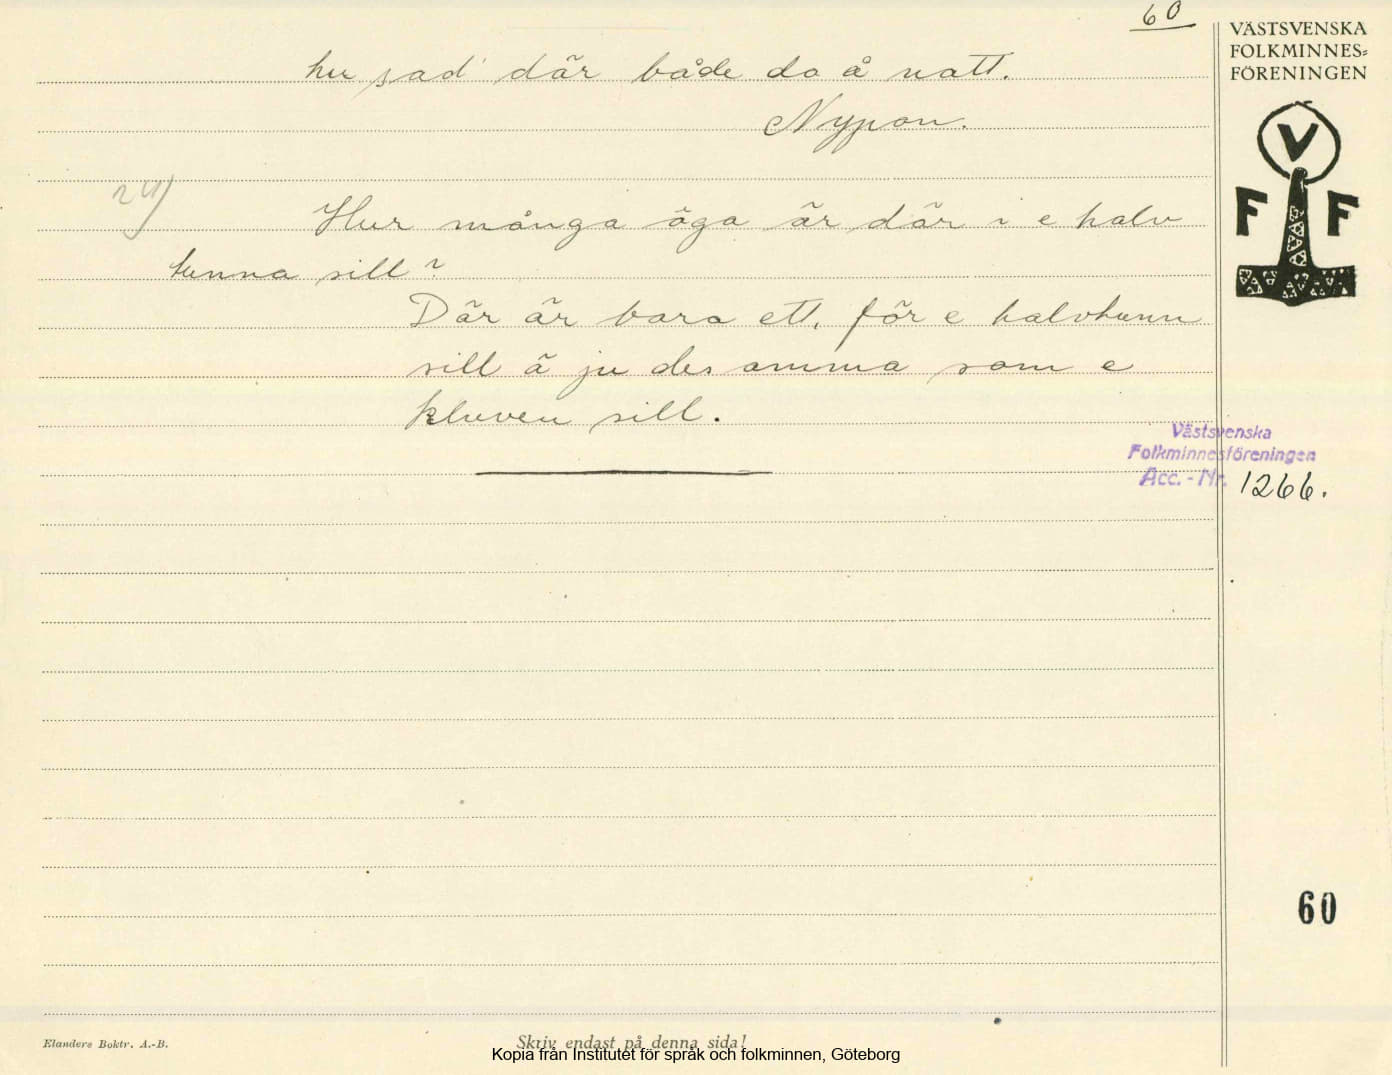 60
VÄSTSVENSKA
FOLKMINNES=
FÖRENINGEN
V
F F
hu sad' där både da å natt.
Nypon.
24)
Hur många öga är där i e halv
tunna sill?
Där är bara ett, för e halvtunn
sill ä ju desamma som e
kluven sill.
Västsvenska
Folkminnesföreningen
Acc. - Nr. 1266.
60
Elanders Boktr. A.-B.
Skriv endast på denna sida!
Kopia från Institutet för språk och folkminnen, Göteborg